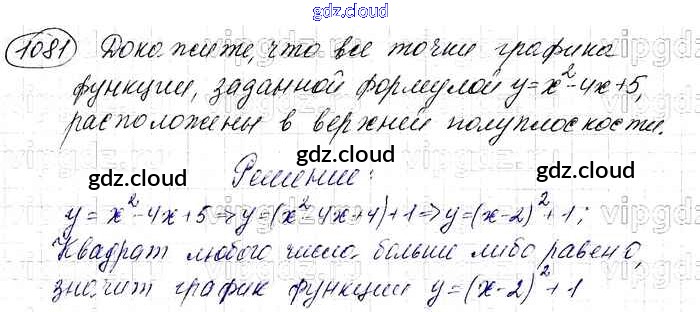 gdz.cloud
1081 Докажите, что все точки графика
функции, заданной формулой y=x²-4x+5,
расположены в верхней полуплоскости.
gdz.cloud gdz.cloud
Решение:
y=x²-4x+5⇒y=(x²-4x+4)+1⇒y=(x-2)²+1;
Квадрат любого числа больше либо равен 0,
значит график функции y=(x-2)²+1